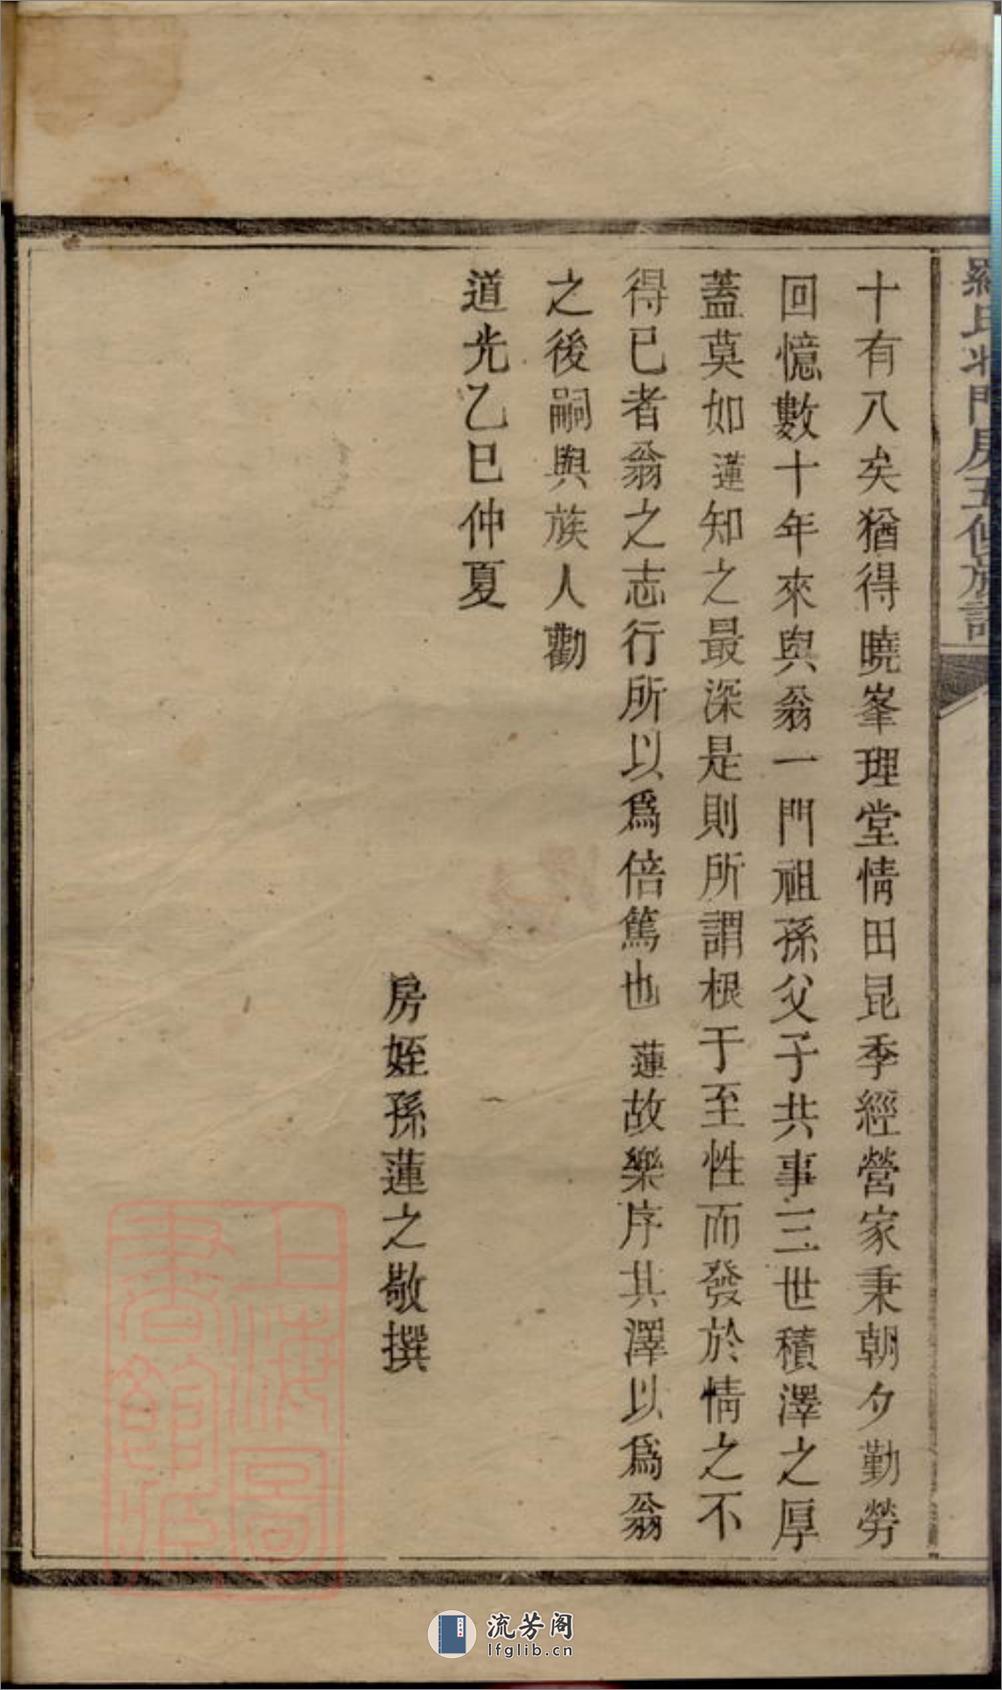 羅氏半門房五修族譜
十有八矣猶得曉峯理堂情田昆季經營家秉朝夕勤勞
回憶數十年來與翁一門祖孫父子共事三世積澤之厚
蓋莫如蓮知之最深是則所謂根于至性而發於情之不
得已者翁之志行所以為倍篤也蓮故樂序其澤以為翁
之後嗣與族人勸
道光乙巳仲夏
房姪孫蓮之敬撰
上海圖書館藏
流芳阁
lfglib.cn